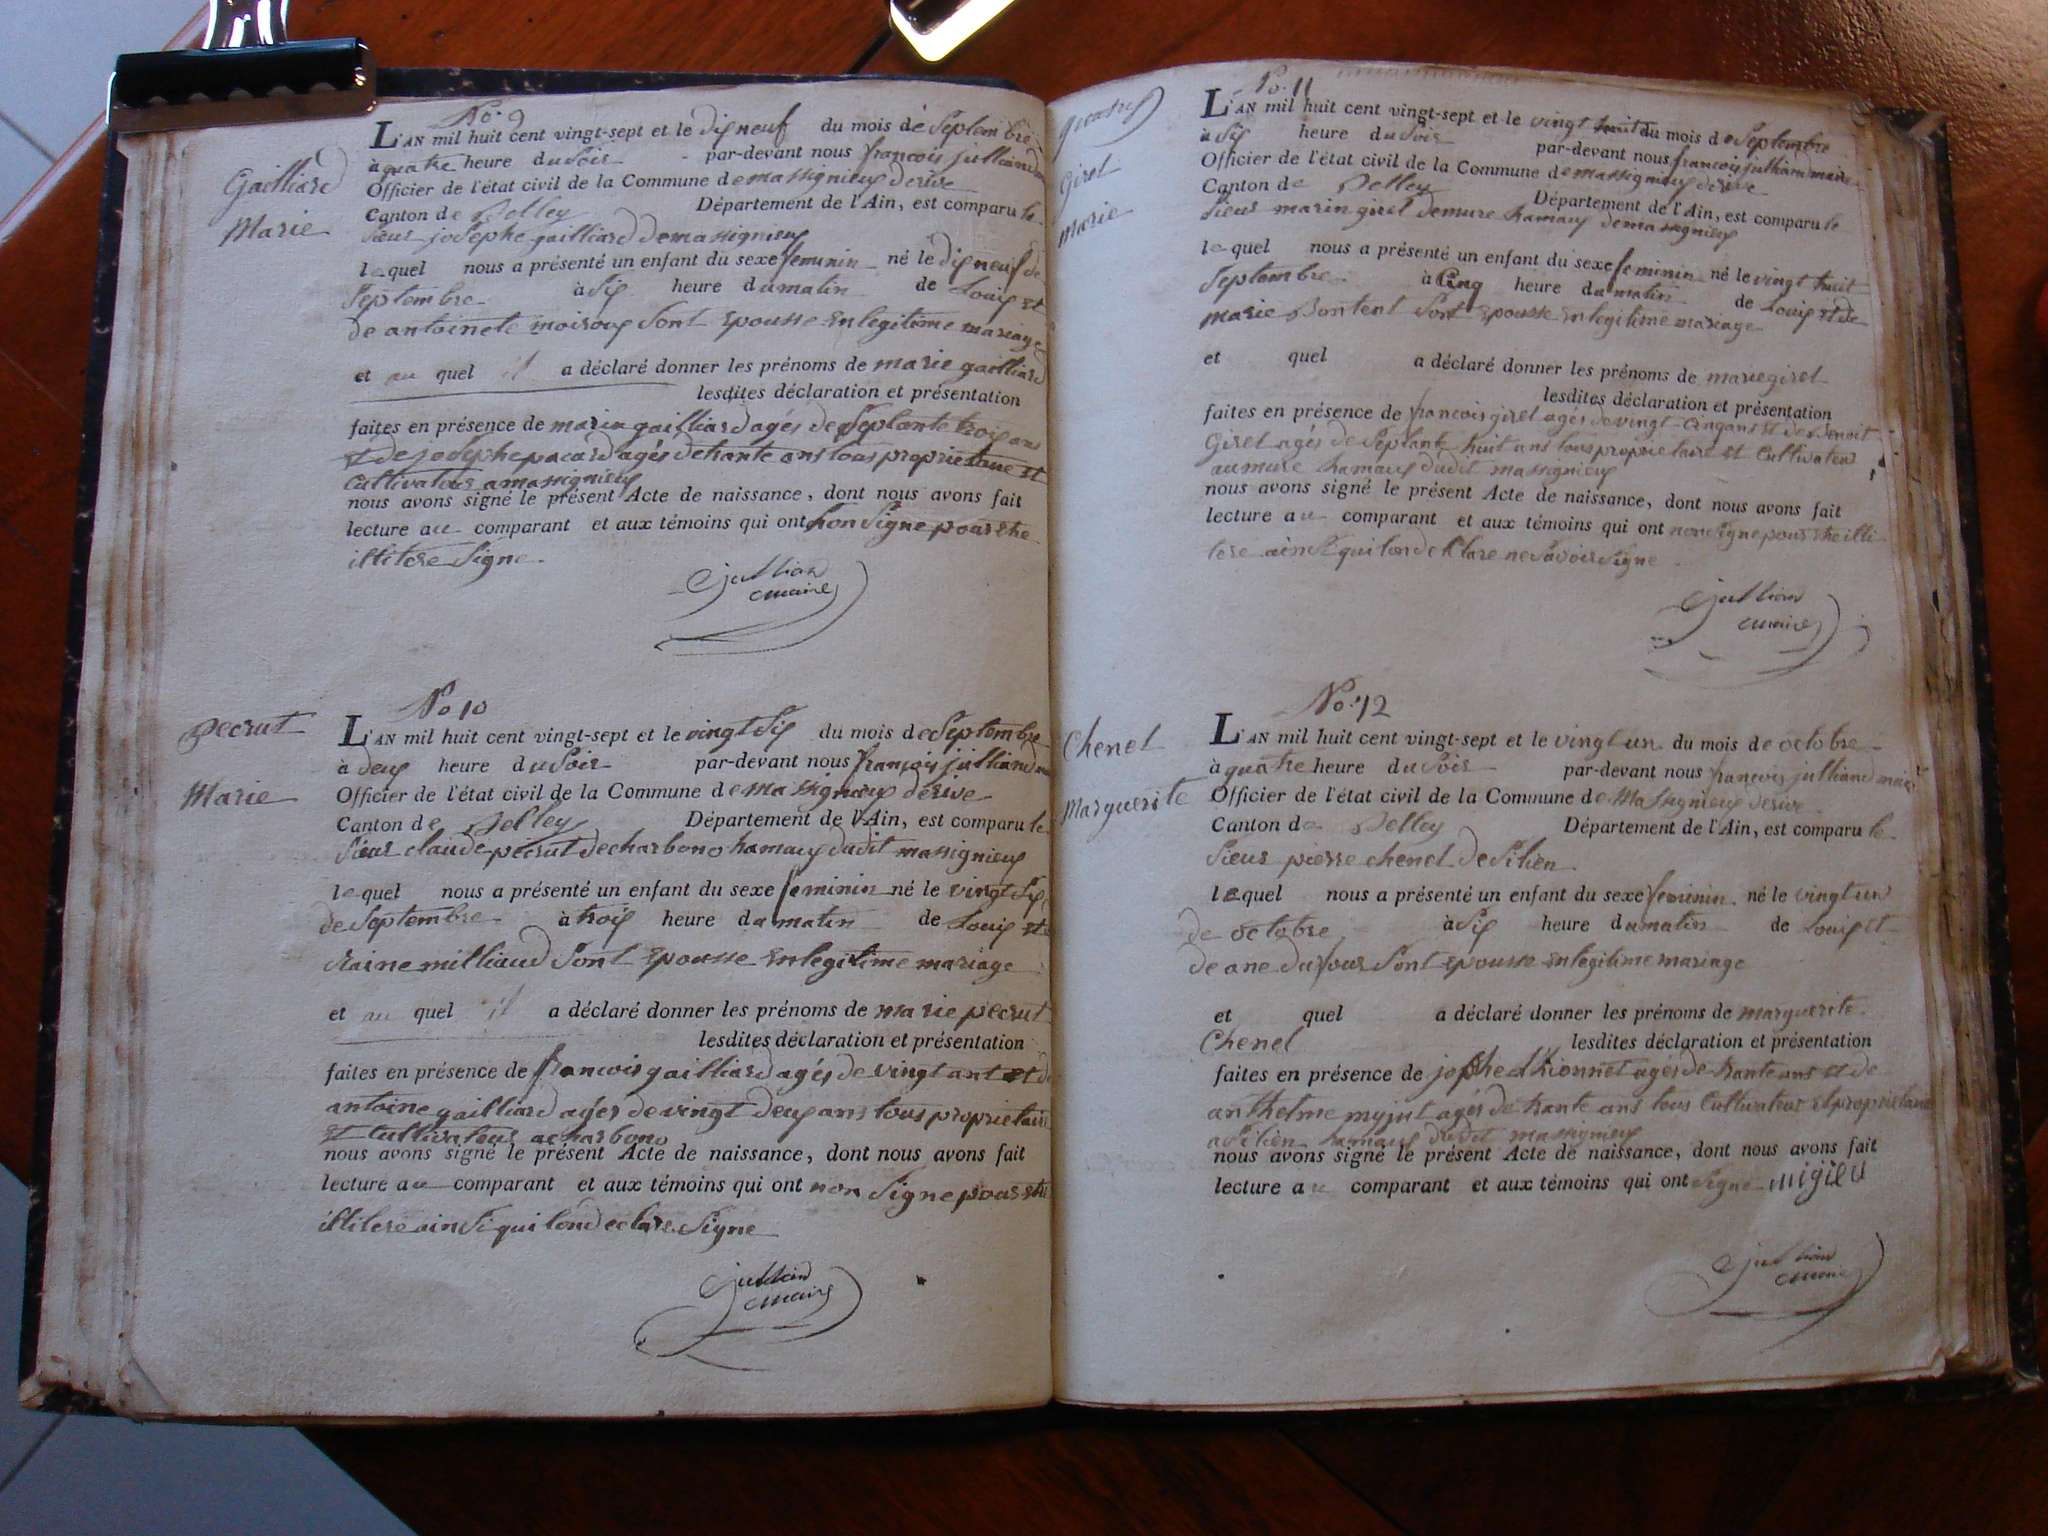 No. 9
Gailliard
Marie
L'AN mil huit cent vingt-sept et le dix neuf du mois de Septembre
à quatre heure du Soir par-devant nous françois julliand
Officier de l'état civil de la Commune de massignieu de rive
Canton de Belley Département de l'Ain, est comparu le
Sieur josephe gailliard de massignieu
lequel nous a présenté un enfant du sexe feminin né le dix neuf de
Septembre à Six heure du matin de Louis et
de antoinete moiroux Sont Epousse En legitime mariage
et au quel il a déclaré donner les prénoms de marie gailliard
lesdites déclaration et présentation
faites en présence de marin gailliard agés de Septante trois ans
et de josephe pacard agés de trante ans tous proprietaire et
Cultivateur a massignieu
nous avons signé le présent Acte de naissance, dont nous avons fait
lecture au comparant et aux témoins qui ont non Signe pour etre
illitere Signe
jullian
maire
No 10
pecrut
Marie
L'AN mil huit cent vingt-sept et le vingt Six du mois de Septembre
à deux heure du Soir par-devant nous françois julliand
Officier de l'état civil de la Commune de massignieu de rive
Canton de Belley Département de l'Ain, est comparu le
Sieur claude pecrut de charbono hamaux dudit massignieu
lequel nous a présenté un enfant du sexe feminin né le vingt Six
de Septembre à trois heure du matin de Louis et
milliaud Sont Epousse En legitime mariage
et au quel il a déclaré donner les prénoms de marie pecrut
lesdites déclaration et présentation
faites en présence de françois gailliard agés de vingt ant et de
antoine gailliard agés de vingt deux ans tous proprietaire
et Cultivateur a charbono
nous avons signé le présent Acte de naissance, dont nous avons fait
lecture au comparant et aux témoins qui ont non Signe pour etre
illitere ainsi qui lond eclare Signe
jullian
maire
No. 11
Girel
marie
L'AN mil huit cent vingt-sept et le vingt huit du mois de Septembre
à Six heure du Soir par-devant nous françois julliand maire
Officier de l'état civil de la Commune de massignieu de rive
Canton de Belley Département de l'Ain, est comparu le
Sieur marin girel de mure hamaux de massignieu
lequel nous a présenté un enfant du sexe feminin né le vingt huit
Septembre à Cinq heure du matin de Louis et de
marie Bontent Sont Epousse En legitime mariage
et quel a déclaré donner les prénoms de marie girel
lesdites déclaration et présentation
faites en présence de françois girel agés de vingt-cinq ans et de Benoit
Girel agés de Septante huit ans tous proprietaire et Cultivateur
au mure hamaux dudit massignieu
nous avons signé le présent Acte de naissance, dont nous avons fait
lecture au comparant et aux témoins qui ont non Signe pour etre illi
tere ainsi qui lon de Klare ne Savoir Signe
jullian
maire
No. 12
Chenel
Marguerite
L'AN mil huit cent vingt-sept et le vingt un du mois de octobre
à quatre heure du Soir par-devant nous françois julliand maire
Officier de l'état civil de la Commune de Massignieu de rive
Canton de Belley Département de l'Ain, est comparu le
Sieur pierre chenel de Silien
lequel nous a présenté un enfant du sexe feminin né le vingt un
de octobre à Six heure du matin de Louis et
de ane dufour Sont Epousse En legitime mariage
et quel a déclaré donner les prénoms de marguerite
Chenel lesdites déclaration et présentation
faites en présence de agés de trante ans et de
anthelme myjut agés de trante ans tous Cultivateur et proprietaire
a Silien hamaux dudit massignieu
nous avons signé le présent Acte de naissance, dont nous avons fait
lecture au comparant et aux témoins qui ont Signe migieu
jullian
maire